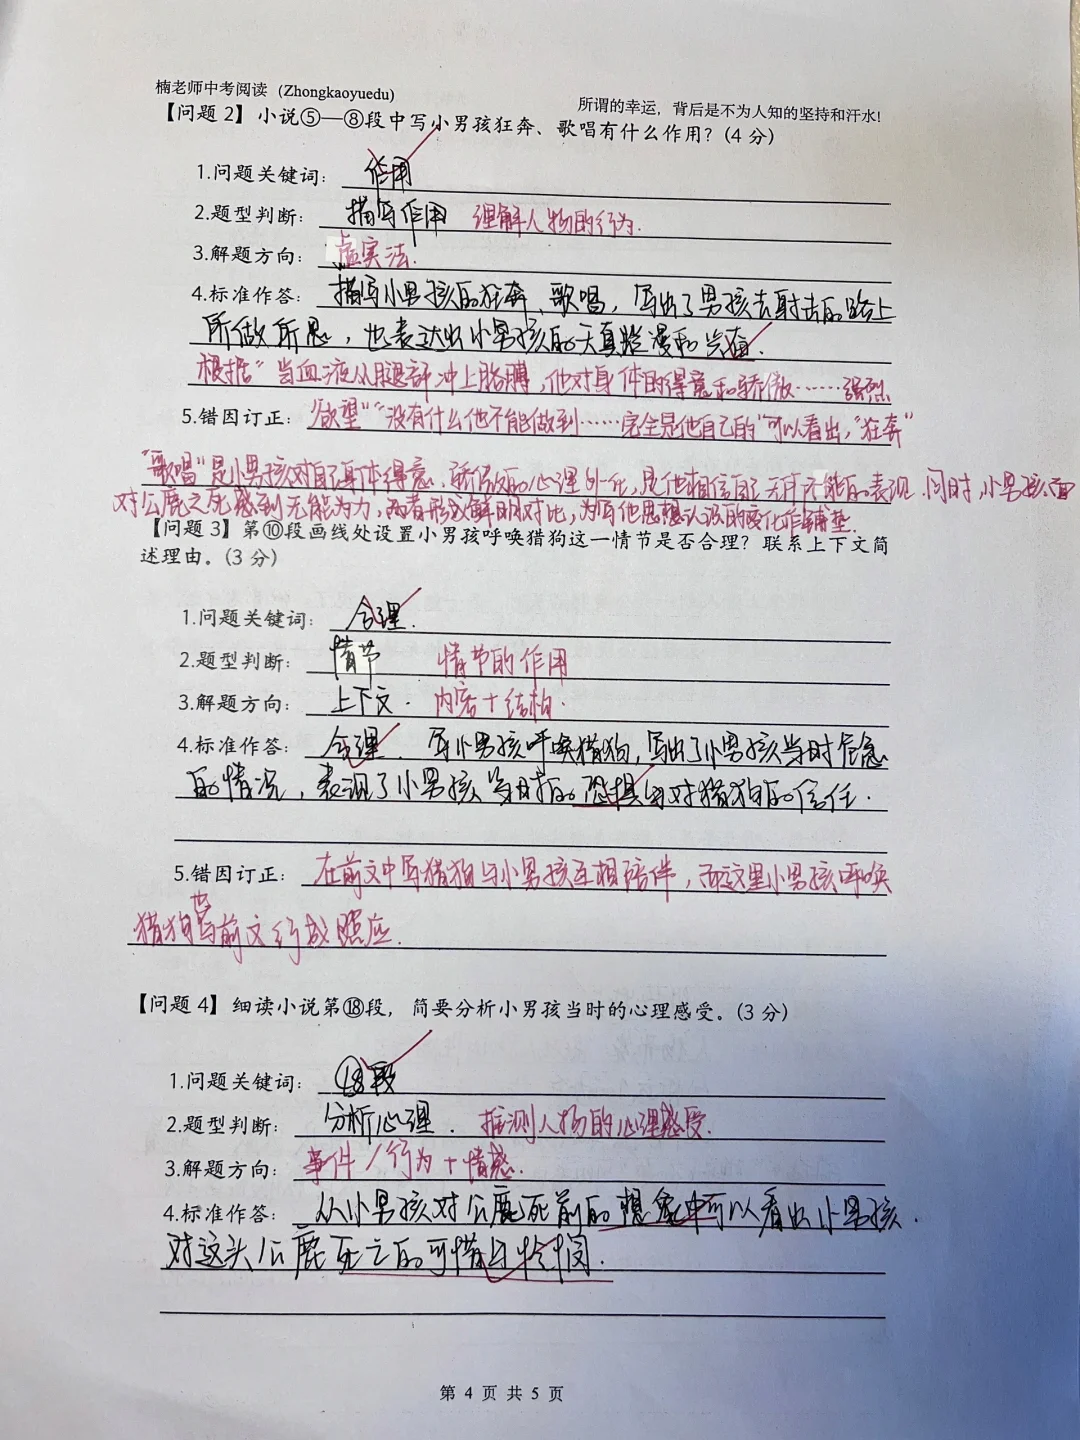 楠老师中考阅读 (Zhongkaoyuedu)
所谓的幸运，背后是不为人知的坚持和汗水!
【问题 2】小说⑤—⑧段中写小男孩狂奔、歌唱有什么作用？(4 分)
1.问题关键词： 作用
2.题型判断： 描写作用 理解人物的行为.
3.解题方向： 虚实法.
4.标准作答： 描写小男孩的狂奔、歌唱，写出了男孩去射击的路上
所做所思，也表达出小男孩的天真烂漫和兴奋.
根据"当血液从腿部冲上胳膊，他对身体的得意和骄傲……强烈
5.错因订正： 欲望""没有什么他不能做到……完全是他自己的"可以看出，"狂奔"
"歌唱"是小男孩对自己身体得意、骄傲的心理外化，是他相信自己无所不能的表现.同时，小男孩面
对公鹿之死感到无能为力，两者形成鲜明对比，为写他思想认识的变化作铺垫.
【问题 3】第⑩段画线处设置小男孩呼唤猎狗这一情节是否合理？联系上下文简
述理由。(3 分)
1.问题关键词： 合理.
2.题型判断： 情节 情节的作用
3.解题方向： 上下文. 内容+结构.
4.标准作答： 合理. 写小男孩呼唤猎狗，写出了小男孩当时危急
的情况，表现了小男孩当时的恐惧与对猎狗的信任.
5.错因订正： 在前文中写猎狗与小男孩互相陪伴，而这里小男孩呼唤
猎狗也与前文行成照应.
【问题 4】细读小说第⑱段，简要分析小男孩当时的心理感受。(3 分)
1.问题关键词： ⑱段
2.题型判断： 分析心理. 推测人物的心理感受.
3.解题方向： 事件/行为+情感.
4.标准作答： 从小男孩对公鹿死前的想象中可以看出小男孩.
对这头公鹿死亡的可惜与怜悯.
第 4 页 共 5 页